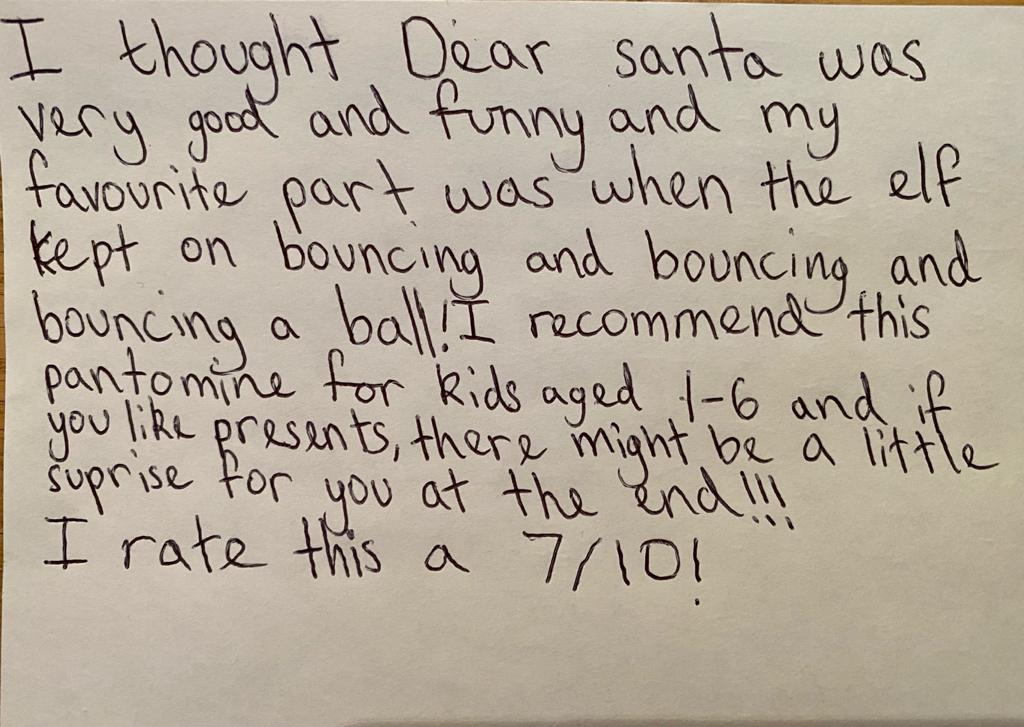 I thought Dear santa was
very good and funny and my
favourite part was when the elf
kept on bouncing and bouncing and
bouncing a ball! I recommend this
pantomine for kids aged 1-6 and if
you like presents, there might be a little
suprise for you at the end!!!
I rate this a 7/10!